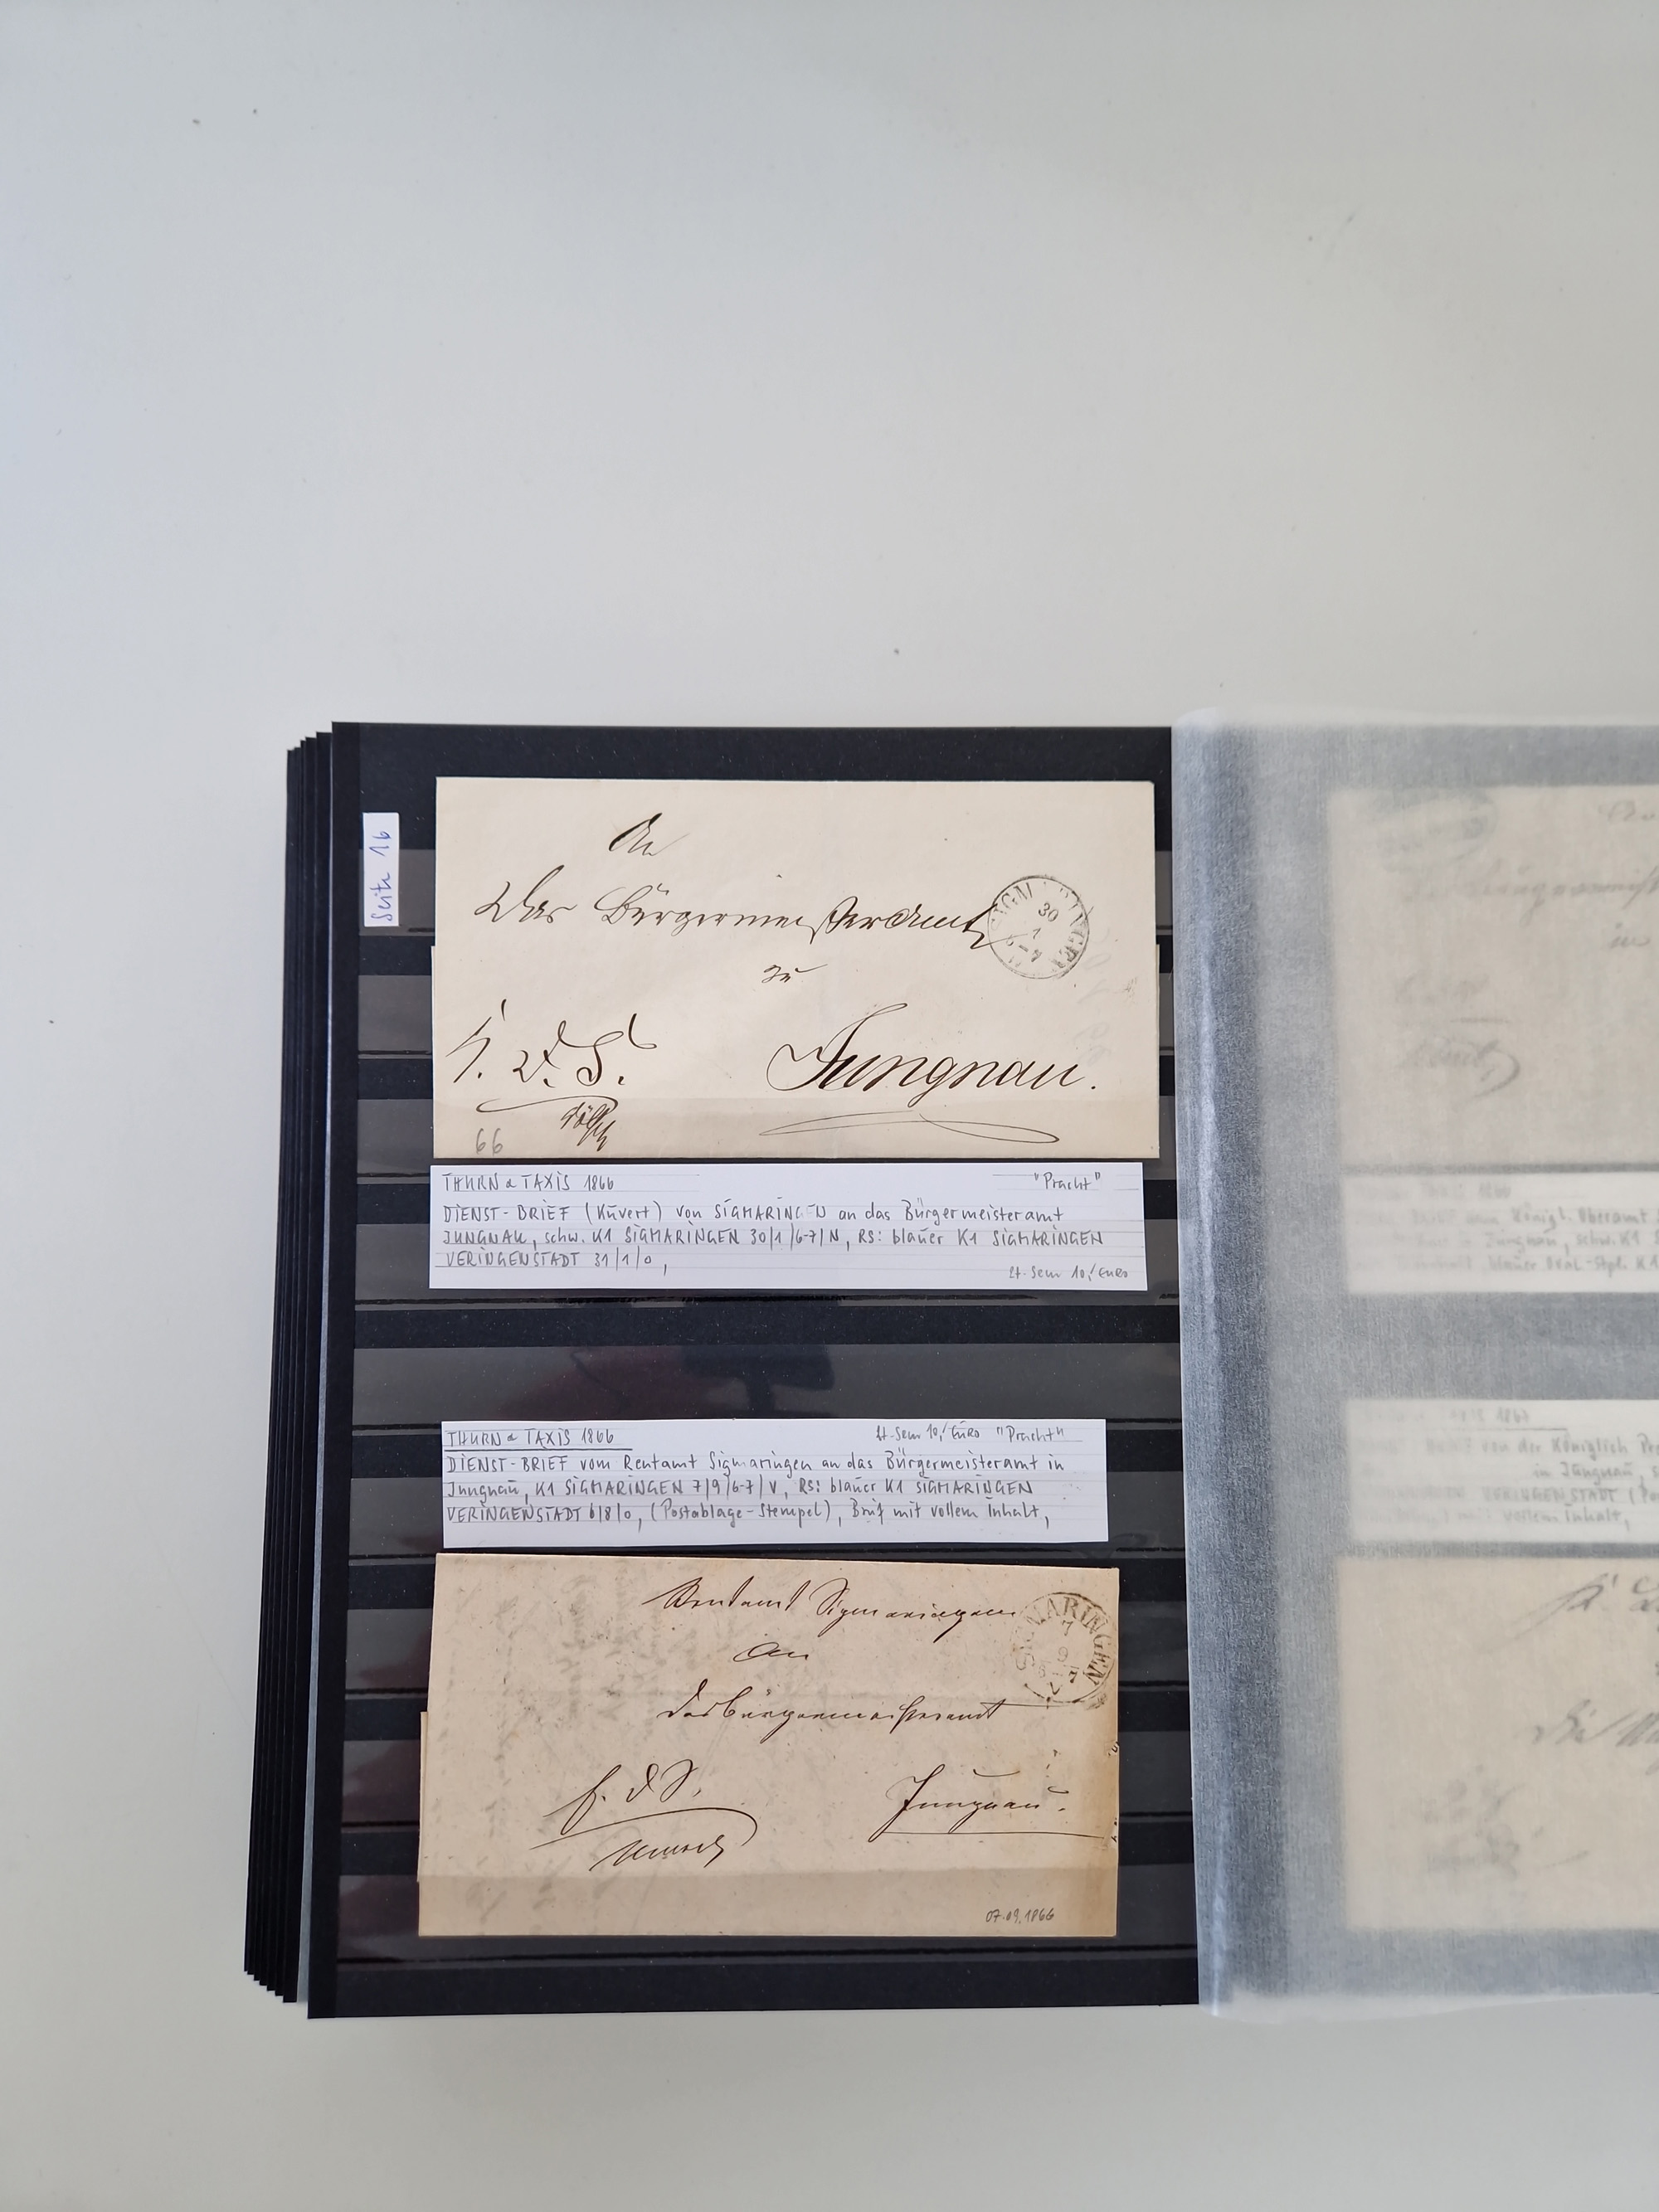 Seite 16
An
Das Bürgermeisteramt
SIGMARINGEN
30
1
6-7
zu
K. D. S.
Jungnau.
66
THURN & TAXIS 1866 "Pracht"
DIENST-BRIEF (Kuvert) von SIGMARINGEN an das Bürgermeisteramt
JUNGNAU, schw. K1 SIGMARINGEN 30/1/6-7/N, RS: blauer K1 SIGMARINGEN
VERINGENSTADT 31/1/0,
lt. Sem 10,- Euro
THURN & TAXIS 1866 lt. Sem 10,- Euro "Pracht"
DIENST-BRIEF vom Rentamt Sigmaringen an das Bürgermeisteramt in
Jungnau, K1 SIGMARINGEN 7/9/6-7/V, RS: blauer K1 SIGMARINGEN
VERINGENSTADT 6/8/0, (Postablage-Stempel), Brief mit vollem Inhalt,
Rentamt Sigmaringen
SIGMARINGEN
7
9
6-7
V
An
das Bürgermeisteramt
f. d. S.
Jungnau.
07.09.1866
Königl. Oberamt
in Jungnau, schw. K1
blauer Oval-Stpl. K1
von der Königlich
in Jungnau,
VERINGENSTADT
mit vollem Inhalt,